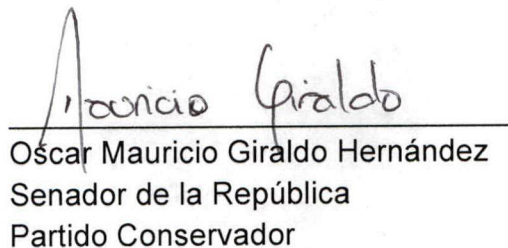 Mauricio Giraldo
Oscar Mauricio Giraldo Hernández
Senador de la República
Partido Conservador